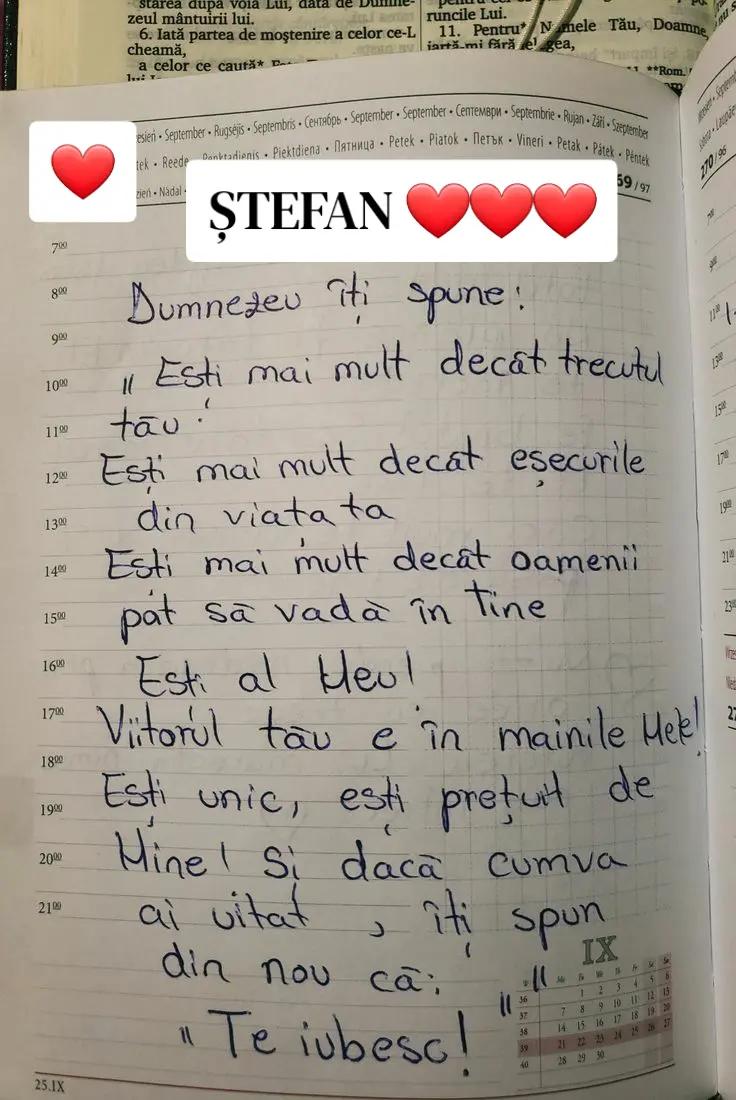 starea după voia Lui, dată de Dumne-
zeul mântuirii lui.
6. Iată partea de moștenire a celor ce-L
cheamă,
a celor ce caută*
runcile Lui.
11. Pentru* Numele Tău, Doamne,
iartă-mi
**Rom.
September • Rugsėjis • Septembris • Сентябрь • September • September • Септември • Septembrie • Rujan • Září • Szeptember
Reede • Penktadienis • Piektdiena • Пятница • Petek • Piatok • Петък • Vineri • Petak • Pátek • Péntek
Nādal
/97
270/96
❤️
ȘTEFAN ❤️❤️❤️
7⁰⁰
8⁰⁰ Dumnezeu îți spune:
9⁰⁰
10⁰⁰ „Ești mai mult decât trecutul
11⁰⁰ tău!
12⁰⁰ Ești mai mult decât eșecurile
13⁰⁰ din viața ta
14⁰⁰ Ești mai mult decât oamenii
15⁰⁰ pot să vadă în tine
16⁰⁰ Ești al Meu!
17⁰⁰ Viitorul tău e în mainile Mele!
18⁰⁰
19⁰⁰ Ești unic, ești prețuit de
20⁰⁰ Mine! Și dacă cumva
21⁰⁰ ai uitat, îți spun
din nou că:"
„Te iubesc!"
IX
36 1 2 3 4 5 6
37 7 8 9 10 11 12 13
38 14 15 16 17 18 19 20
39 21 22 23 24 25 26 27
40 28 29 30
25.IX